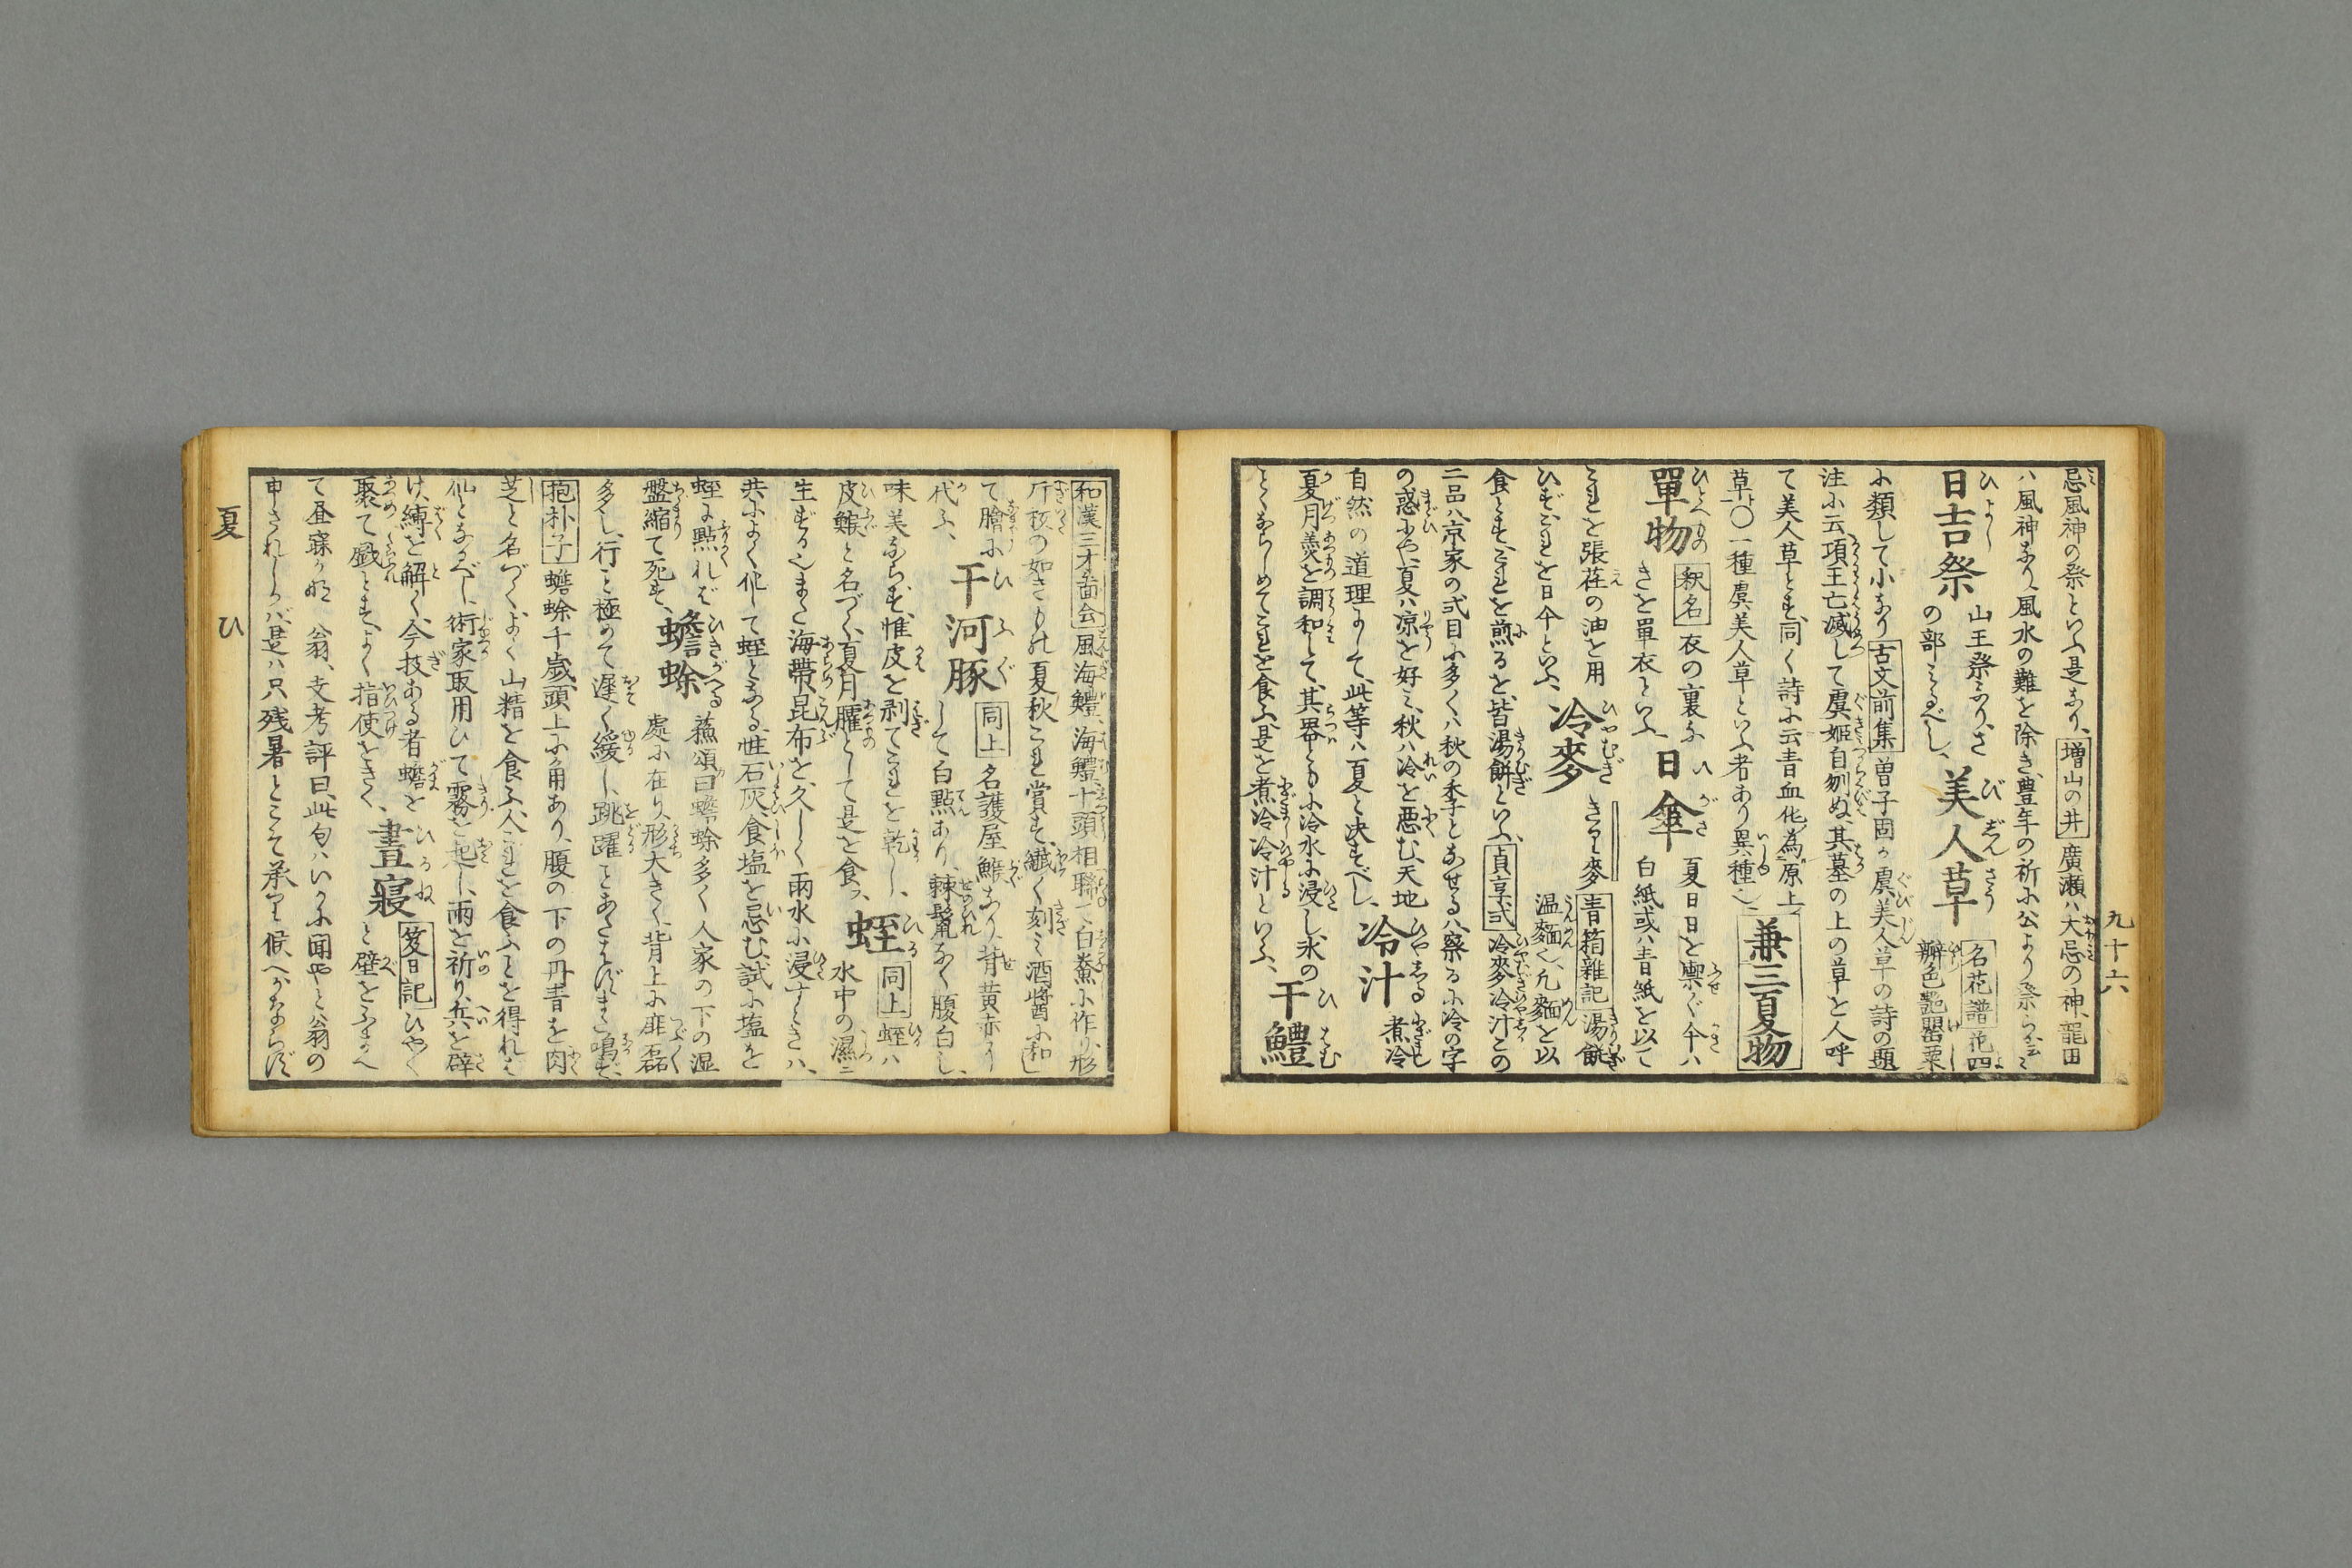 九十六
忌風神の祭といふ是なり、増山の井廣瀬ハ大忌の神、龍田
ハ風神なり、風水の難を除き、豊年の祈に公より祭らるゝ云々
日吉祭 山王祭なり、さの部にみるべし、 美人草 名花譜 花四瓣色艶罌粟
に類して小なり 古文前集 曽子固が虞美人草の詩の題
注に云項王亡滅して虞姫自刎ぬ、其墓の上の草と人呼
て美人草とす、同く詩に云青血化為原上
草、〇一種虞美人草といふ者あり異種也 兼三夏物
單物 釈名 衣の裏なきを單衣といふ、 日傘 夏日日を禦ぐ傘ハ白紙或ハ青紙を以て
これを張荏の油を用
ひず、これを日傘といふ、 冷麥 きり麥 青箱雑記 湯餅温麺也、凡麺を以
食とす、これを煎るを、皆湯餅といふ、 貞享式 冷麥冷汁この
二品ハ京家の式目に多くハ秋の季とあせるハ察るに冷の字
の惑にや、夏ハ凉を好ミ、秋ハ冷を悪む、天地
自然の道理にして、此等ハ夏と決すべし、 冷汁 煮冷
夏月羹を調和して、其器ともに冷水に浸し、氷の
とくならしめてこれを食ふ、是を煮冷冷汁といふ、 干鱧
和漢三才啚会 風海鱧、海鱧十頭相聯て白鯗に作り、形
斤板の如きもの夏秋これ賞す、繊く刻ミ酒醬に和し
て膾に
代ふ、 干河豚 同上 名護屋鯸なり、背黄赤にして白點あり、棘鬣なく腹白し、
味美ならず、惟皮を剥てこれを乾し、
皮鯸と名づく、夏月臛として是を食ふ、 蛭 同上 蛭ハ水中の濕ニ
生ずる也、また海帯、昆布を、久しく雨水に浸すときハ、
共によく化して蛭となる、性石灰、食塩を忌む、試に塩を
蛭に點れバ
盤縮て死す、 蟾蜍 蘓頌曰蟾蜍多く人家の下の湿處に在り、形大きく、背上に痱磊
多し、行こと極めて遅く緩し、跳躍ことあたはず、また鳴ず、
抱朴子 蟾蜍千歳頭上に角あり、腹の下の丹書を肉
芝と名づく、よく山精を食ふ、人これを食ふことを得れバ
仙となるべし、術家取用ひて霧を起し、雨を祈り、兵を辟
け、縛を解く、今技ある者蟾を
聚て戯とす、よく指使をきく、 晝寢 笈日記 ひや〳〵と壁をふまへ
て昼寐かな 翁、支考評曰、此句ハいかに聞やと翁の
申されしかバ、是ハ只残暑とこそ承り候へかならず
夏 ひ